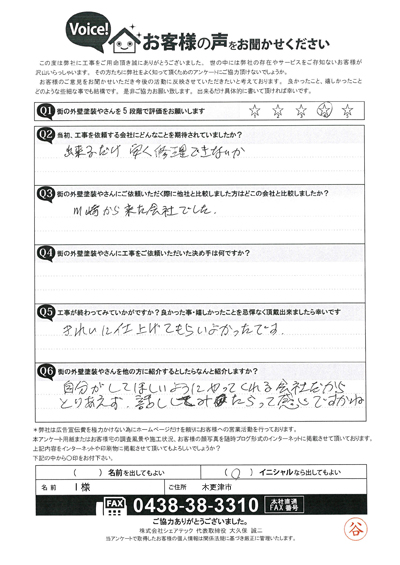 Voice!
お客様の声をお聞かせください
この度は弊社に工事をご用命頂き誠にありがとうございました。世の中には弊社の存在やサービスをご存知ないお客様が
沢山いらっしゃいます。その方たちに弊社をよく知って頂くためのアンケートにご協力頂けないでしょうか。
お客様のご意見をお聞かせいただき今後の活動に反映させていただきたいと考えております。良かったこと、嬉しかったこと
どのような些細な事でも結構です。是非ご協力お願い致します。出来るだけ具体的に書いて頂ければ幸いです。
Q1 街の外壁塗装やさんを5段階で評価をお願いします ☆ ☆ ☆ ☆ ☆
Q2 当初、工事を依頼する会社にどんなことを期待されていましたか?
出来るだけ安く修理できないか
Q3 街の外壁塗装やさんにご依頼いただく際に他社と比較しました方はどこの会社と比較しましたか?
川崎から来た会社でした。
Q4 街の外壁塗装やさんに工事をご依頼いただいた決め手は何ですか?
Q5 工事が終わってみていかがですか?良かった事・嬉しかったことを忌憚なく頂戴出来ましたら幸いです
きれいに仕上げてもらいよかったです。
Q6 街の外壁塗装やさんを他の方に紹介するとしたらなんと紹介しますか?
自分がしてほしいようにやってくれる会社だから
とりあえず、話してみたらって感じですかね
※弊社は広告宣伝費を極力かけない為にホームページだけを頼りにお客様への営業活動を行っております。
本アンケート用紙またはお客様宅の調査風景や施工状況、お客様の顔写真を随時ブログ形式のインターネットに掲載させて頂いております。
上記内容をインターネットや印刷物に掲載させて頂いてもよろしいでしょうか?
下記の中から○印をお付け下さい。
( )名前を出してもよい (○)イニシャルなら出してもよい
名前 I様 ご住所 木更津市
FAX 0438-38-3310 本社直通 FAX番号
ご協力ありがとうございました。
株式会社シェアテック 代表取締役 大久保 誠二
当アンケートで取得したお客様の個人情報は関係法規に基づき厳正に管理いたします。
谷